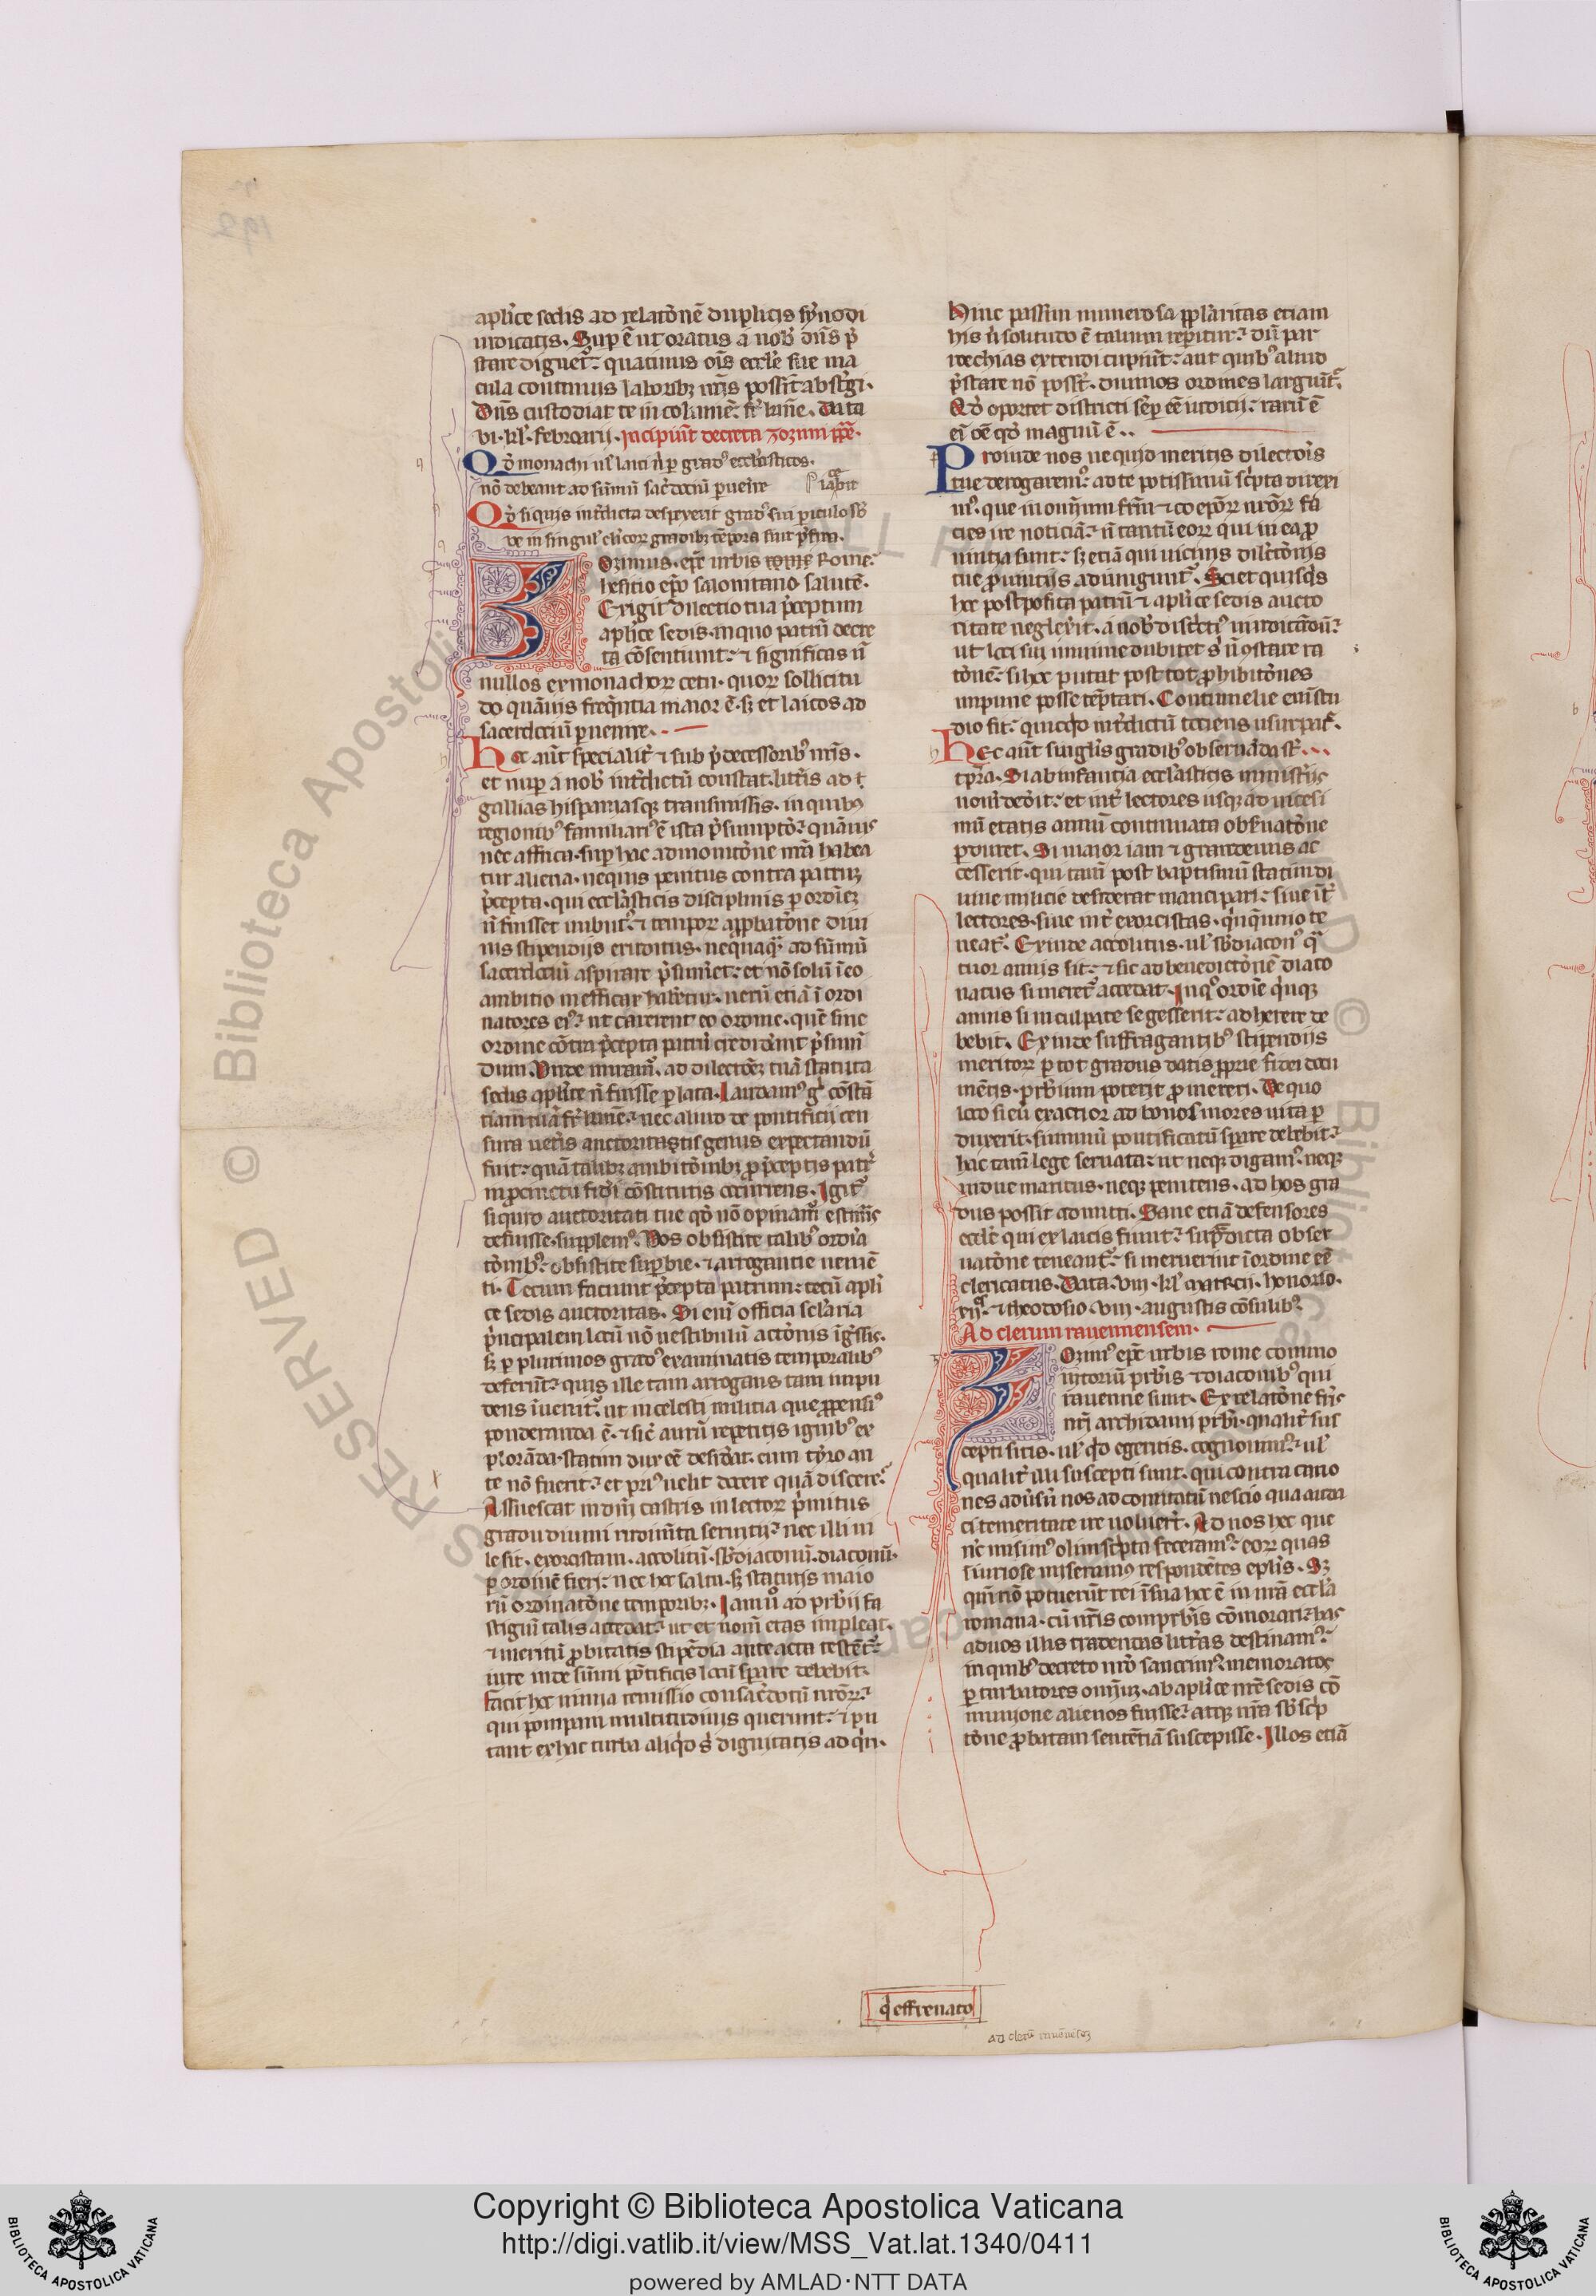 apl'ice sedis ad relatōnē duplicis sy̆nodi
iudicatis. Sup ē ut oratus a nob' dn̄s p̄
stare dignet᷑: quatinus oīs eccl'e sue ma
cula continuis laboribꝫ ur̄is possit abst'gi.
Dn̄s custodiat te in colume: fr̄ kme. Data
vi. kl' februarij. Incipiūt decreta zozimi ꝑꝑe.
Qd' monachi ul' laici n' ꝑ grad' eccl'iasticos.
nō debeant ad sūmū sac'dociū ꝑuenire
Qd' si quis int'dicta despexerit grad' sui ꝑiculo sb'
de in singul' cl'icoꝝ gradibꝫ tēpora sint p̄fixa.
Ozimus. ep̄c urbis rome Rome:
hesitio ep̄o salonitano salutē.
Exigit dilectio tua p̄ceptum
apl'ice sedis. in quo patrū decre
ta cōsentiunt: ⁊ significas n̄
nullos ex monachoꝝ cetu. quoꝝ sollicitu
do quāuis freq̄ntia maior ē. sꝫ et laicos ad
sacerdociū ꝑuenire.
hec aūt specialit' ⁊ sub p̄decessorib' nr̄is.
et nuꝑ a nob' int'dictū constat. litt'is ad
gallias hispaniasqꝫ transmissis. in quibus
regionib' familiaris ē ista p̄sumptō: quāuis
nec affrica. suꝑ hac admonitōne nr̄a habea
tur aliena. nequis penitus contra patrū
p̄cepta. qui eccl'iasticis disciplinis ꝑ ordinē
n̄ fuisset imbut': ⁊ tempoꝝ approbatōne diui
nis stipendijs eruditus. nequaq̄ ad sūmū
sacerdociū aspirare p̄sumet: et nō solū ī eo
ambitio inefficax haberetur. uerū etiā ī ordi
natores ei': ut carerent eo ordine. quē sine
ordine cōtra p̄cepta patrū crediderint p̄sumē
dum. Unde miram'. ad dilectōeꝫ tuā statuta
sedis apl'ice n̄ fuisse ꝑlata. Laudam' g' cōstā
tiam tuā fr̄ kme: nec aliud de pontificij cen
sura ueteris auctoritatis genus expectandū
fuit: quā talibꝫ ambitōnibꝫ ꝓ p̄ceptis patrū
in procinctu fidei cōstitutis occurrens. Igit'
si quid auctoritati tue qd' nō opinam' estimas
defuisse. supplem'. Vos obsistite talib' ordina
tōnib': obsistite suꝑbie. ⁊ arrogantie uenie
ti. Tecum faciunt p̄cepta patrum: tecū apl'i
ce sedis auctoritas. Si eni officia secl'aria
p̄ncipalem locū nō uestibulū actōnis ingressis.
sꝫ ꝑ plurimos grad' examinatis temporalib'
deferūt: quis ille tam arrogans tam impu
dens inuenit'. ut in celesti militia que ꝓpensi'
ponderanda ē. ⁊ sic' aurū repetitis ignib' ex
plorāda. statim dux ēē desiderat. cum tyro an
te nō fuerit: et pri' uelit docere quā discere.
Assuescat in dn̄i castris in lectoꝝ p̄mitus
gradu diuini rudimēta seruitij: nec illi ui
le sit. exorcistam. accolitū. sb'diaconū. diaconū.
ꝑ ordinē fieri: nec hoc saltu. sꝫ statutis maio
rū ordinatōne temporibꝫ. Iam u' ad prb'ij fa
stigiū talis accedat: ut et nomē etas impleat.
⁊ meritū probitatis stipēdia anteacta testēt':
iure inde sūmi pontificis locū sꝑare debebit.
Facit hoc nimia remissio consac'dotū nr̄oꝝ:
qui pompam multitudinis querunt: ⁊ pu
tant ex hac turba aliqd' s' dignitatis adqri.
Hinc passim numerosa ꝓpl'aritas etiam
his u' solitudo ē talium reꝑitur: dū par
rochias extendi cupiūt: aut quib' aliud
p̄stare nō possūt. diuinos ordines largiūt'.
Qd' oportet districti semꝑ ēē iudicij: rarū ē
ei ōē qd' magnū ē.
Proinde nos ne quid meritis dilectōis
tue derogarem': ad te potissimū sc'pta direxi
m'. que in omnium fr̄m ⁊ coep̄oꝝ nr̄oꝝ fa
cies ire noticiā: n̄ tantū eoꝝ qui in ea ꝓ
uintia sunt: sꝫ etiā qui uicinis dilectōnis
tue ꝓuintijs adiungunt'. Sciet quisqis
hec postposita patrū ⁊ apl'ice sedis aucto
ritate neglexerit. a nob' districti' uindicandū:
ut loci sui minime dubitet s' n̄ ꝯstare ra
tōnē: si hec putat post tot ꝓhibitōnes
impune posse temptari. Contumelie eni stu
dio fit: quicqd int'dictū tociens usurpat'.
Hec aūt singl'is gradib' obseruāda st'.
tp̄ra. Si ab infantia eccl'iasticis ministerijs
nom̄ dedit: et int' lectores usqꝫ ad uicesi
mū etatis annū continuata obseruatōne
ꝑduret. Si maior iam ⁊ grandeuus ac
cesserit. qui tam post baptismū statim di
uine milicie desiderat mancipari: siue int'
lectores. siue int' exorcistas. qnqnnio te
neat'. Exinde accolitus. ul' sb'diacon' qua
tuor annis sit: ⁊ sic ad benedictōnē diaco
natus si meret' accedat. In q' ordine q̄nqꝫ
annis si inculpate se gesserit: adherere de
bebit. Exinde suffragantib' stipendijs
meritoꝝ ꝑ tot gradus datis ꝓprie fidei docu
mētis. prb'ium poterit ꝓmereri. De quo
loco si eū exactior ad bonos mores uita ꝑ
duxerit. summū pontificatū sperare debebit:
hac tam lege seruata: ut neqꝫ digam': neqꝫ
uidue maritus. neqꝫ penitens. ad hos gra
dus possit admitti. Sane etiā defensores
eccl'e qui ex laicis fiunt: supradicta obser
uatōne teneant': si meruerint ī ordine ēē
clericatus. Data. viii. kl' martij. honorio.
xij. ⁊ theodosio viii. augustis cōsulib'.
Ad clerum rauennensem.
Ozim' ep̄c urbis rome commo
nitoriū prb'is ⁊ diaconib' qui
rauenne sunt. Ex relatōne fr̄is
nr̄i archidami prb'i. qualit' sus
cepti sitis. ul' qd' egeritis. cognouim': ul'
qualit' illi suscepti sunt. qui contra cano
nes aduersū nos ad comitatū nescio qua auda
ci temeritate ire uoluerūt. Ad nos hec que
nc' misim' olim sc'pta feceram': eoꝝ quas
furiose miseramus respondētes epl'is. Sꝫ
qm̄ nō potuerūt rei ī sua hoc ē in nr̄a eccl'a
romana. cū nr̄is comprb'is cōmorari: has
ad uos illis tradendas litt'as destinam':
in quib' decreto nr̄o sanctim': memoratos
ꝑturbatores omniuꝫ. ab apl'ice nr̄e sedis cō
munione alienos fuisse: atqꝫ nr̄a sb'scp
tōne probatam sententiā suscepisse. Illos etiā
q' effrenato
Ad clerū
Copyright © Biblioteca Apostolica Vaticana
http://digi.vatlib.it/view/MSS_Vat.lat.1340/0411
powered by AMLAD·NTT DATA
BIBLIOTECA APOSTOLICA VATICANA
BIBLIOTECA APOSTOLICA VATICANA